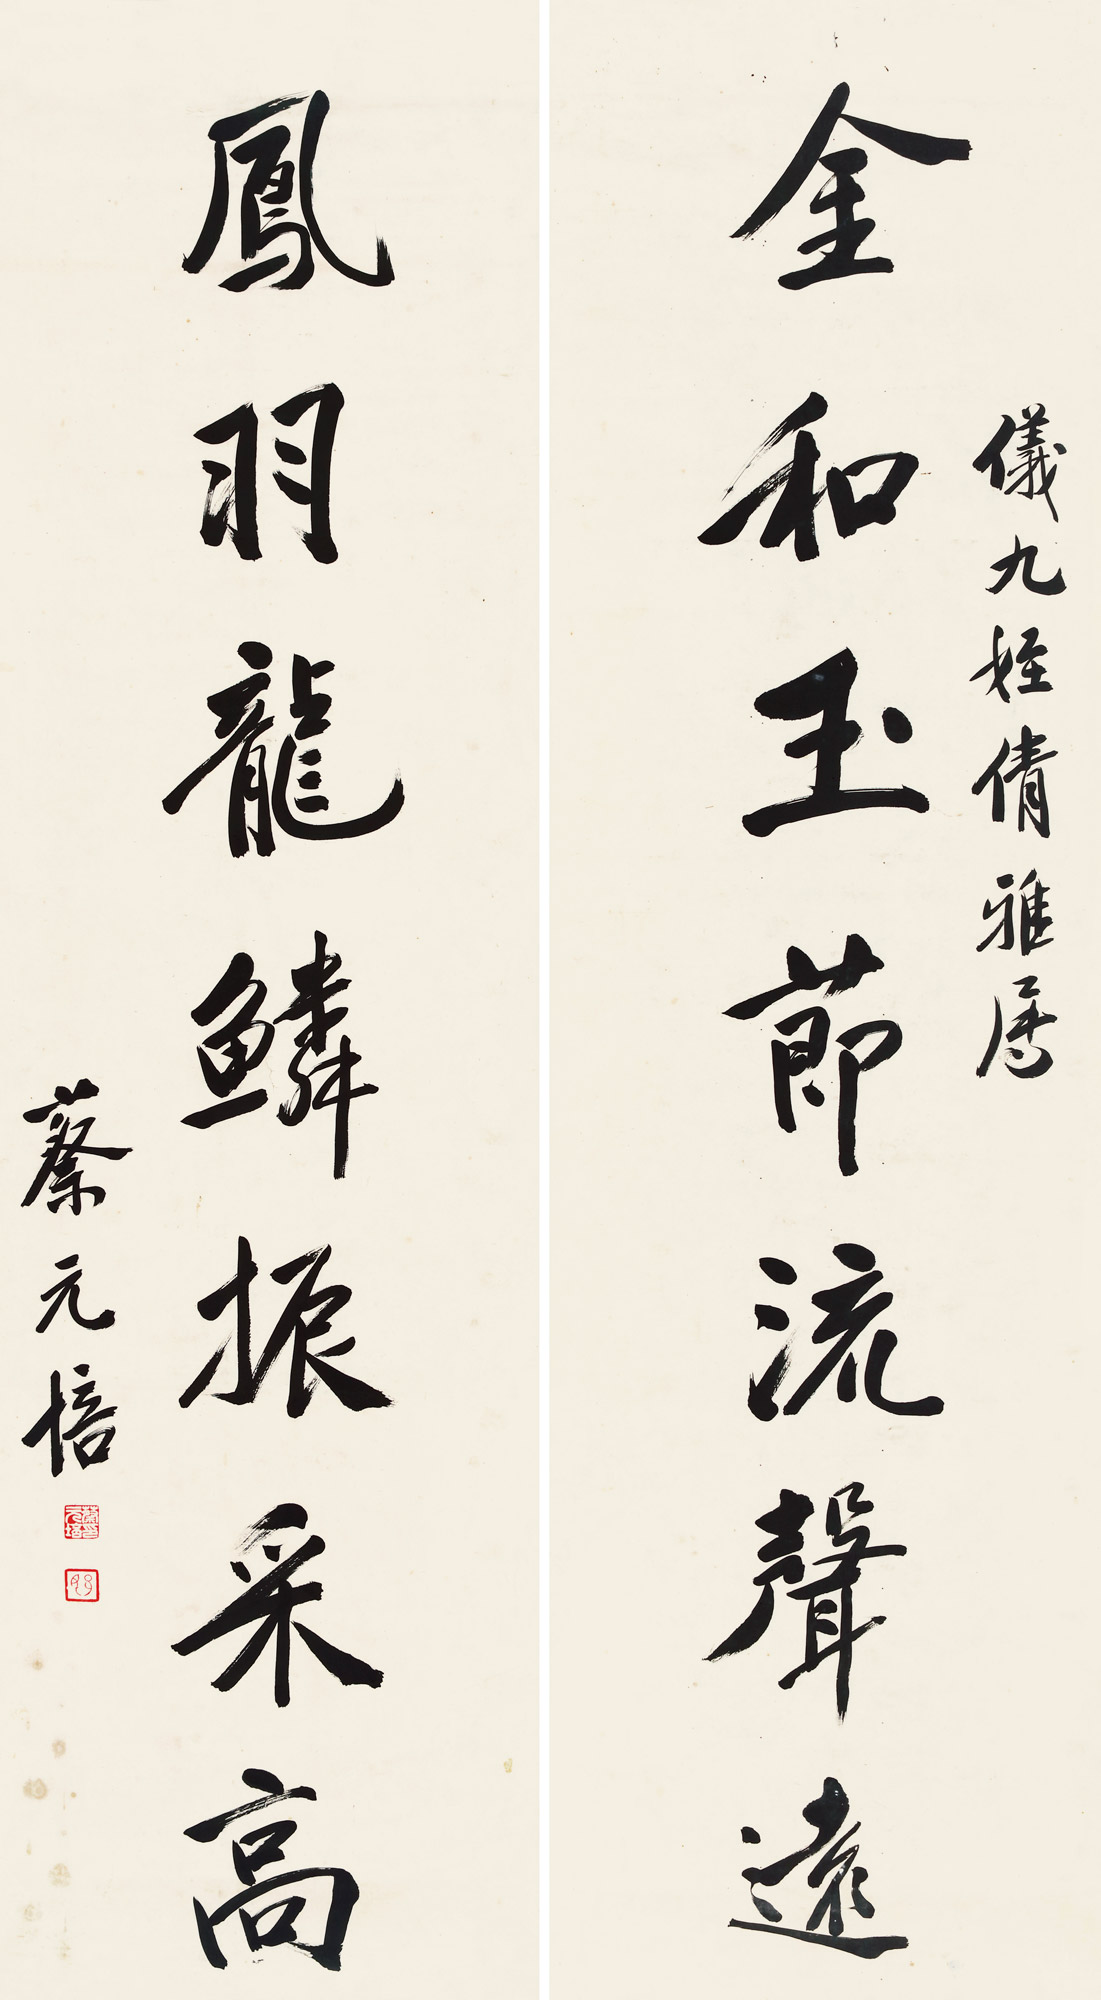 儀九姪倩雅属
金和玉節流聲遠
鳳羽龍鱗振采高
蔡元培
蔡元培印